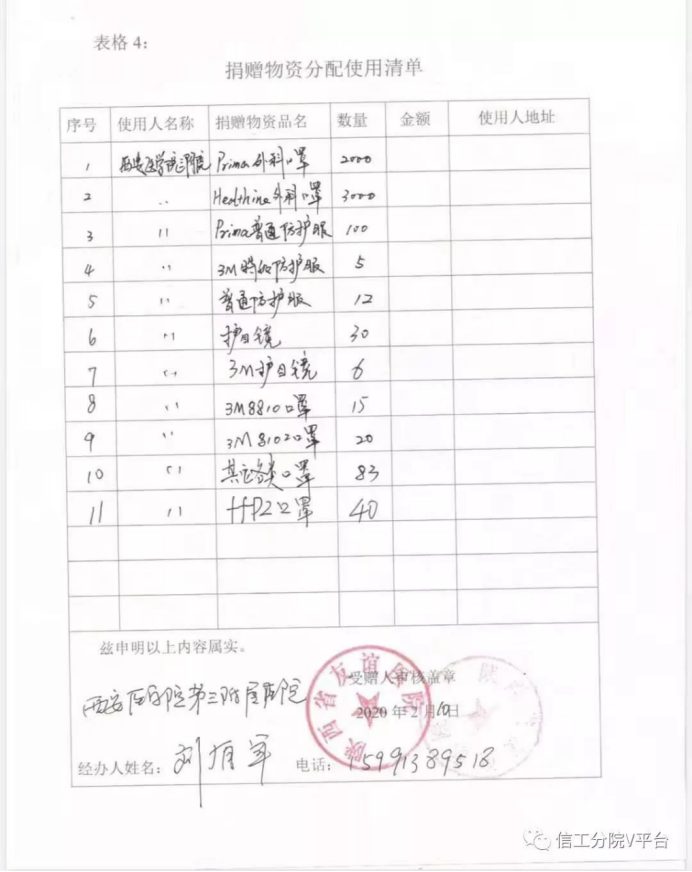 表格 4：
捐赠物资分配使用清单
序号 使用人名称 捐赠物资品名 数量 金额 使用人地址
1 Prima外科口罩 2000
2 〃 外科口罩 3000
3 〃 Prima普通防护服 100
4 〃 3M 防护服 5
5 〃 普通防护服 12
6 〃 护目镜 30
7 〃 3M护目镜 6
8 〃 3M8810口罩 15
9 〃 3M8102口罩 20
10 〃 口罩 83
11 〃 口罩 40
兹申明以上内容属实。
受赠人审核盖章
西安医学院第三附属医院
2020 年 2 月10日
陕西省友谊医院
经办人姓名： 刘 军 电话：15991389518
信工分院V平台